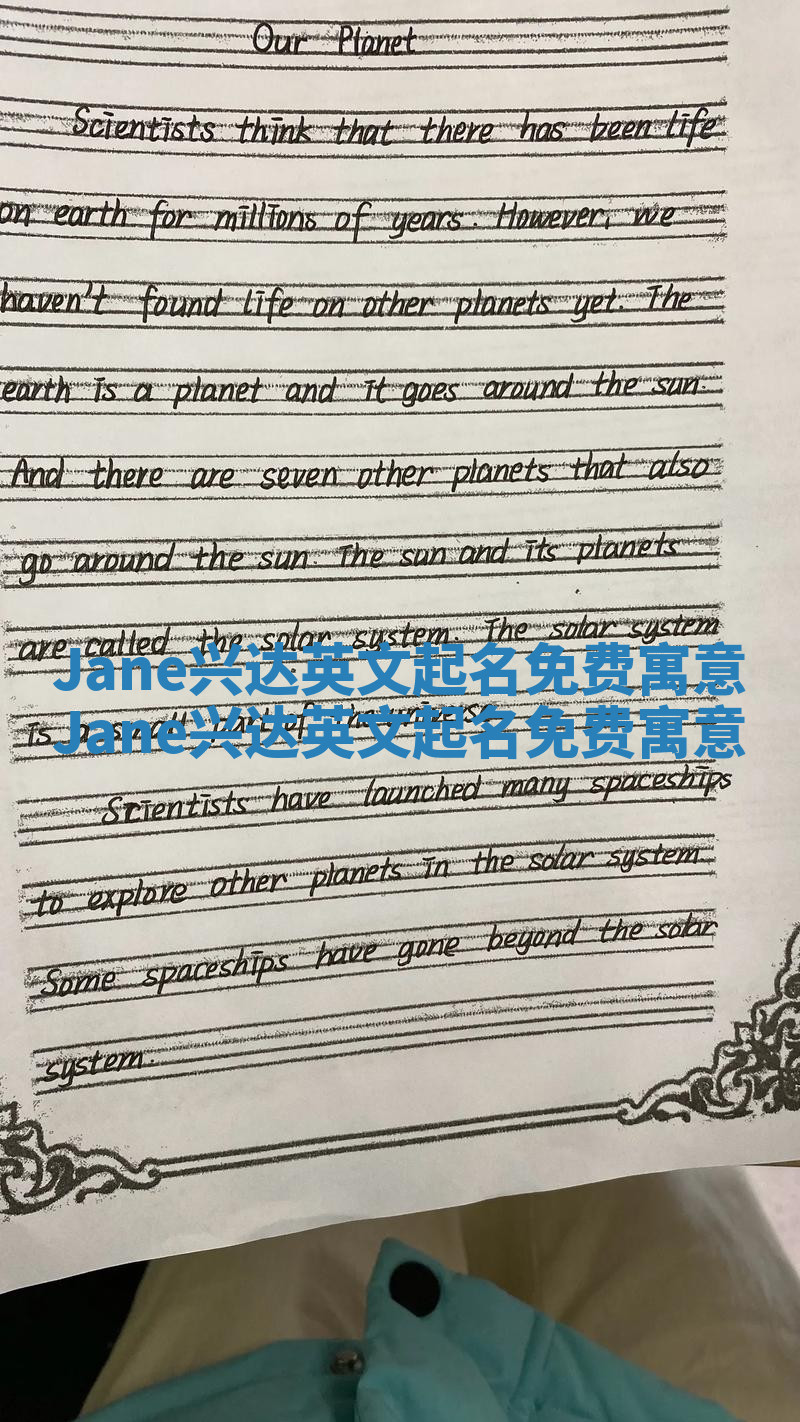 Our Planet
Scientists think that there has been life
on earth for millions of years. However, we
haven't found life on other planets yet. The
earth is a planet and it goes around the sun.
And there are seven other planets that also
go around the sun. The sun and its planets
are called the solar system. The solar system
Jane兴达英文起名免费寓意
is a small part of the universe.
Jane兴达英文起名免费寓意
Scientists have launched many spaceships
to explore other planets in the solar system.
Some spaceships have gone beyond the solar
system.